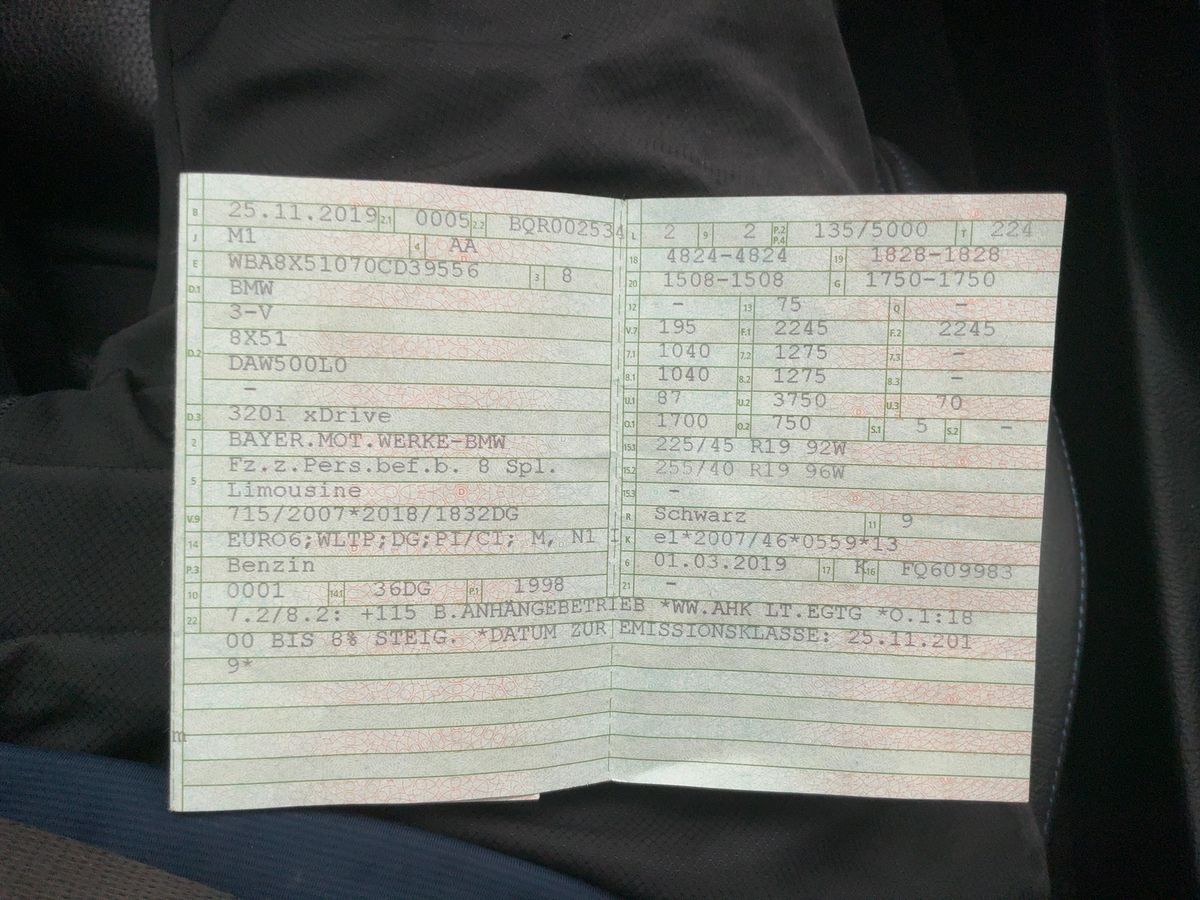 B 25.11.2019 2.1 0005 2.2 BQR002534
J M1 4 AA
E WBA8X51070CD39556 3 8
D.1 BMW
3-V
D.2 8X51
DAW500L0
-
D.3 320i xDrive
2 BAYER.MOT.WERKE-BMW
5 Fz.z.Pers.bef.b. 8 Spl.
Limousine
V.9 715/2007*2018/1832DG
14 EURO6;WLTP;DG;PI/CI; M, N1 I
P.3 Benzin
10 0001 14.1 36DG P.1 1998
L 2 9 2 P.2 P.4 135/5000 T 224
18 4824-4824 19 1828-1828
20 1508-1508 G 1750-1750
12 - 13 75 Q -
V.7 195 F.1 2245 F.2 2245
7.1 1040 7.2 1275 7.3 -
8.1 1040 8.2 1275 8.3 -
U.1 87 U.2 3750 U.3 70
O.1 1700 O.2 750 S.1 5 S.2 -
15.1 225/45 R19 92W
15.2 255/40 R19 96W
15.3 -
R Schwarz 11 9
K e1*2007/46*0559*13
6 01.03.2019 17 K 16 FQ609983
21 -
22 7.2/8.2: +115 B.ANHÄNGEBETRIEB *WW.AHK LT.EGTG *O.1:18
00 BIS 8% STEIG. *DATUM ZUR EMISSIONSKLASSE: 25.11.201
9*
m